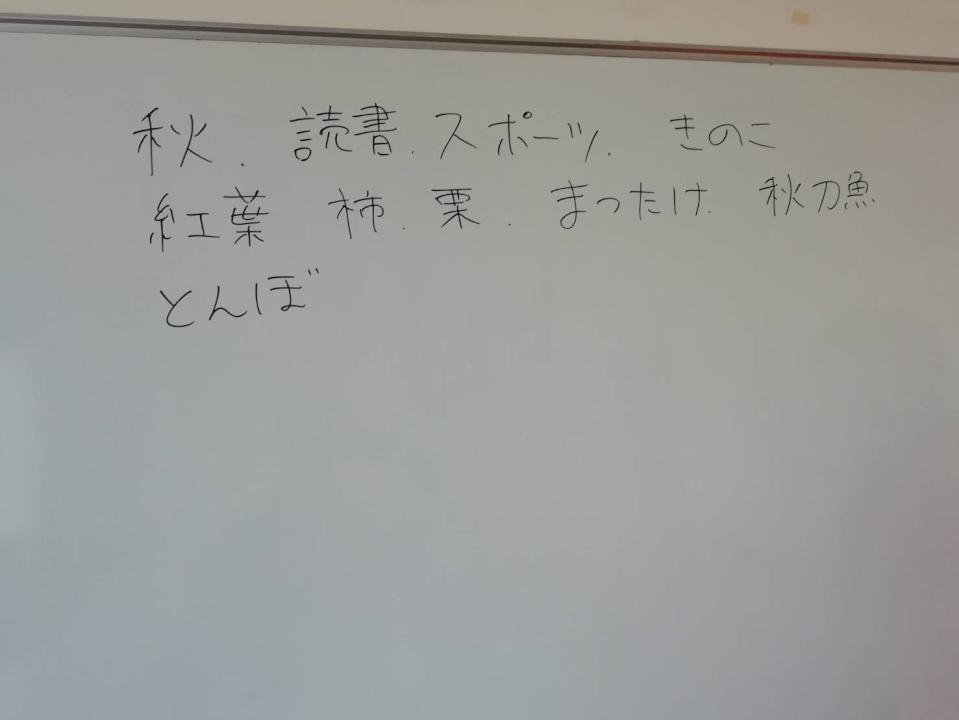 秋. 読書. スポーツ. きのこ
紅葉 柿. 栗. まったけ. 秋刀魚
とんぼ